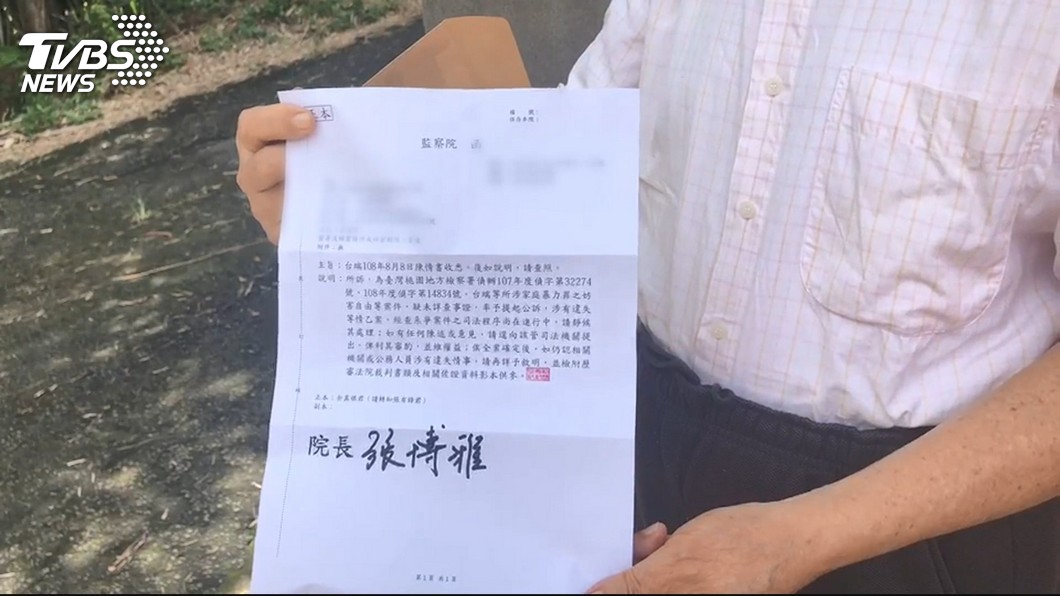 TVBS
NEWS
正本
檔　號：
保存年限：
監察院　函
附件：無
主旨：台端108年8月8日陳情書收悉。復如說明，請查照。
說明：所訴，為臺灣桃園地方檢察署偵辦107年度偵字第32274
號、108年度偵字第14834號，台端等所涉家庭暴力罪之妨
害自由等案件，疑未詳查事證，率予提起公訴，涉有違失
等情乙案，經查系爭案件之司法程序尚在進行中，請靜候
其處理；如有任何陳述或意見，請逕向該管司法機關提
出，俾利其審酌，並維權益；俟全案確定後，如仍認相關
機關或公務人員涉有違失情事，請再詳予敘明，並檢附歷
審法院裁判書類及相關佐證資料影本供參。
副本：
院長 張博雅
第1頁 共1頁